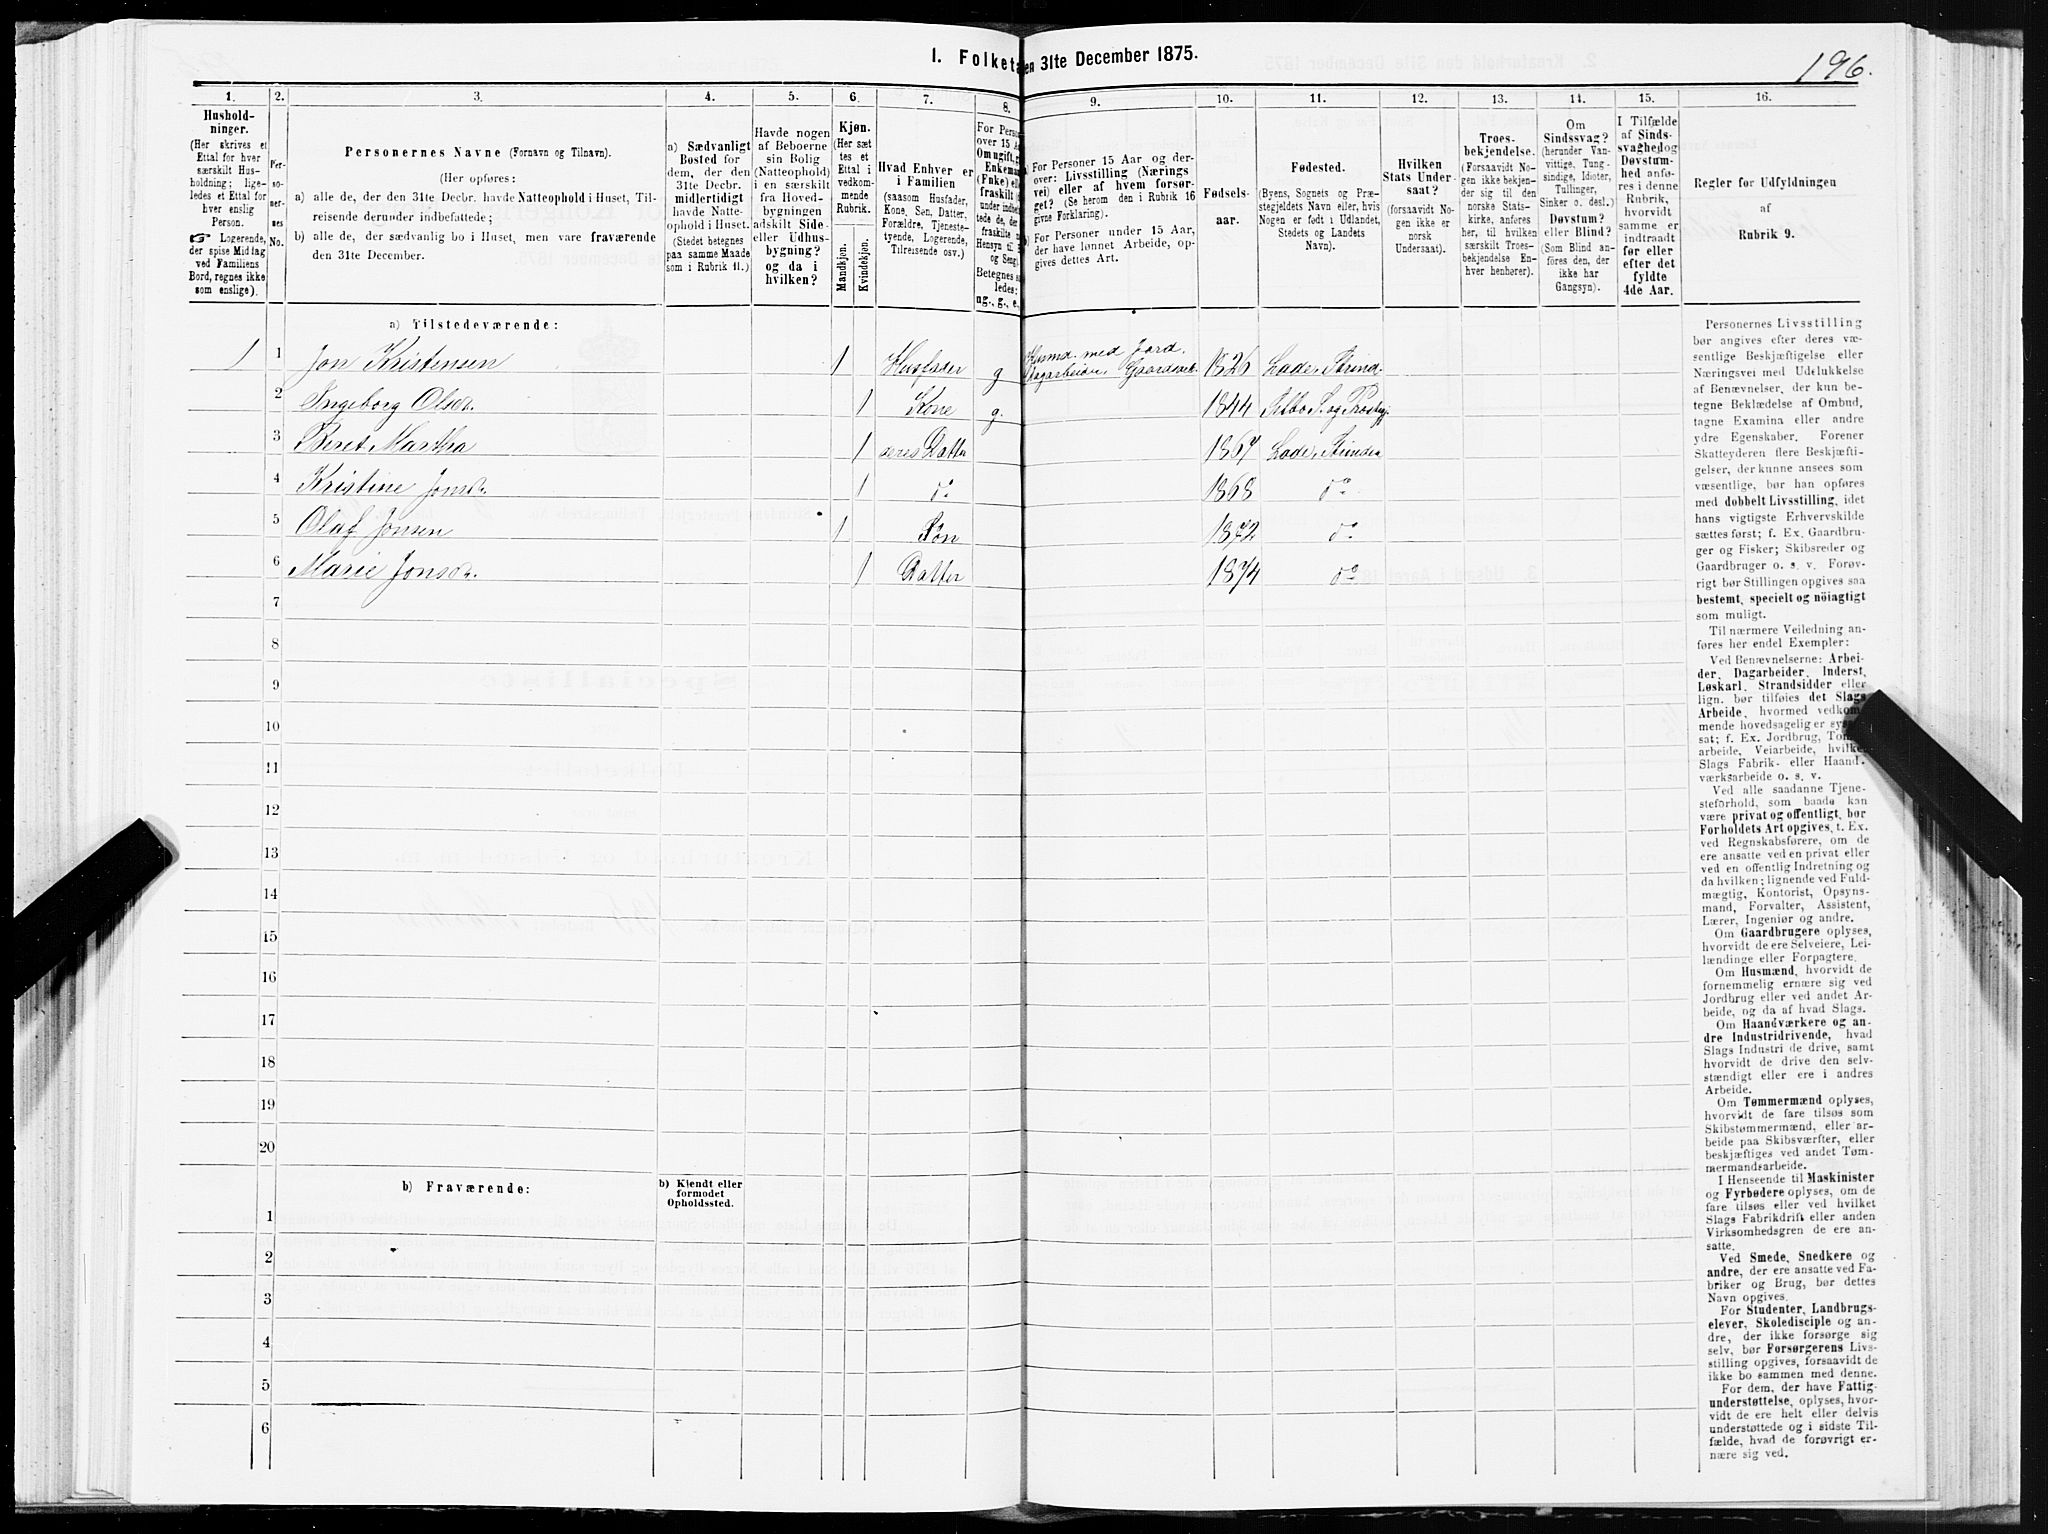 1. Folketa en 31te December 1875.
196.
1. 2. 3. 4. 5. 6. 7. 8. 9. 10. 11. 12. 13. 14. 15. 16.
Hushold-
ninger.
(Her skrives et
Ettal for hver
særskilt Hus-
holdning; lige-
ledes et Ettal for
hver enslig
Person.
☞ Logerende,
der spise Middag
ved Familiens
Bord, regnes ikke
som enslige).
Per-
so-
ner-
nes
No.
Personernes Navne (Fornavn og Tilnavn).
(Her opføres:
a) alle de, der den 31te Decbr. havde Natteophold i Huset, Til-
reisende derunder indbefattede;
b) alle de, der sædvanlig bo i Huset, men vare fraværende
den 31te December.
a) Sædvanligt
Bosted for
dem, der den
31te Decbr.
midlertidigt
havde Natte-
ophold i Huset.
(Stedet betegnes
paa samme Maade
som i Rubrik 11.)
Havde nogen
af Beboerne
sin Bolig
(Natteophold)
i en særskilt
fra Hoved-
bygningen
adskilt Side-
eller Udhus-
bygning?
og da i
hvilken?
Kjøn.
(Her sæt
tes et
Ettal i
vedkom-
mende
Rubrik.
Mandkjøn.
Kvindekjøn.
Hvad Enhver er
i Familien
(saasom Husfader,
Kone, Søn, Datter,
Forældre, Tjeneste-
tyende, Logerende,
Tilreisende osv.)
For Perso
over 15 Aa
Om ugift, g
Enkema
(Fnke) ell
fraskilt
under indbe
tede de, de
fraskilte
Hensyn til
og Seng
Betegnes s
ledes:
ug., g., e.
a) For Personer 15 Aar og der-
over: Livsstilling (Nærings
vei) eller af hvem forsør-
get? (Se herom den i Rubrik 16
givne Forklaring).
b) For Personer under 15 Aar,
der have lønnet Arbeide, op-
gives dettes Art.
Fødsels-
aar.
Fødested.
(Byens, Sognets og Præ-
stegjeldets Navn eller, hvis
Nogen er født i Udlandet,
Stedets og Landets
Navn).
Hvilken
Stats Under-
saat?
(forsaavidt No-
gen ikke er
norsk
Undersaat).
Troes-
bekjendelse.
(Forsaavidt No-
gen ikke bekjen-
der sig til den
norske Stats-
kirke, anføres
her, til hvilken
særskilt Troes-
bekjendelse En-
hver henhører).
Om
Sindssvag?
(herunder Van-
vittige, Tung-
sindige, Idioter,
Tullinger,
Sinker o. desl.)
Døvstum?
eller Blind?
(Som Blind an-
føres den, der
ikke har
Gangsyn).
I Tilfælde
af Sinds-
svaghedog
Døvstum-
hed anfø-
res i denne
Rubrik,
hvorvidt
samme er
indtraadt
før eller
efter det
fyldte
4de Aar.
Regler for Udfyldningen
af
Rubrik 9.
a) Tilstedeværende:
1 1 Jon Kristensen 1 Husfader g Husmd. med Jord. Dagarbeider Gaardsarb. 1826 Lade, Strind.
2 Ingeborg Olsdr. 1 Kone g. 1844 Selbo S. og Prestegj.
3 Beret Martha 1 deres Datter 1867 Lade, Strinden
4 Kristine Jonsdr. 1 do 1868 do
5 Olaf Jonsen 1 Søn 1872 do
6 Marie Jonsdr. 1 Datter 1874 do
7
8
9
10
11
12
13
14
15
16
17
18
19
20
b) Fraværende:
b) Kjendt eller
formodet
Opholdssted.
1
2
3
4
5
6
Personernes Livsstilling
bør angives efter deres væ-
sentlige Beskjæftigelse eller
Næringsvei med Udelukkelse
af Benævnelser, der kun be-
tegne Beklædelse af Ombud,
tagne Examina eller andre
ydre Egenskaber. Forener
Skatteyderen flere Beskjæfti-
gelser, der kunne ansees som
væsentlige, bør han opføres
med dobbelt Livsstilling, idet
hans vigtigste Erhvervskilde
sættes først; f. Ex. Gaardbru-
ger og Fisker; Skibsreder og
Gaardbruger o. s. v. Forøv-
rigt bør Stillingen opgives saa
bestemt, specielt og nöiagtigt
som muligt.
Til nærmere Veiledning an-
føres her endel Exempler:
Ved Benævnelserne: Arbei-
der, Dagarbeider, Inderst,
Løskarl, Strandsidder eller
lign. bør tilføies det Slags
Arbeide, hvormed vedkom-
mende hovedsagelig er syssel-
sat; f. Ex. Jordbrug, Tom-
arbeide, Veiarbeide, hvilket
Slags Fabrik- eller Haand-
værksarbeide o. s. v.
Ved alle saadanne Tjene-
steforhold, som baade kan
være privat og offentligt, bør
Forholdets Art opgives, t. Ex.
ved Regnskabsførere, om de
ere ansatte ved en privat eller
ved en offentlig Indretning og
da hvilken; lignende ved Fuld-
mægtig, Kontorist, Opsyns-
mand, Forvalter, Assistent,
Lærer, Ingeniør og andre.
Om Gaardbrugere oplyses,
hvorvidt de ere Selveiere, Lei-
lændinge eller Forpagtere.
Om Husmænd, hvorvidt de
fornemmelig ernære sig ved
Jordbrug eller ved andet Ar-
beide, og da af hvad Slags.
Om Haandværkere og an-
dre Industridrivende, hvad
Slags Industri de drive, samt
hvorvidt de drive den selv-
stændigt eller ere i andres
Arbeide.
Om Tømmermænd oplyses,
hvorvidt de fare tilsøs som
Skibstømmermænd, eller ar-
beide paa Skibsværfter, eller
beskjæftiges ved andet Tøm-
mermandsarbeide.
I Henseende til Maskinister
og Fyrbødere oplyses, om de
fare tilsøs eller ved hvilket
Slags Fabrikdrift eller anden
Virksomhedsgren de ere an-
satte.
Ved Smede, Snedkere og
andre, der ere ansatte ved Fa-
briker og Brug, bør dettes
Navn opgives.
For Studenter, Landbrugs-
elever, Skoledisciple og an-
dre, der ikke forsørge sig
selv, bør Forsørgerens Livs-
stilling opgives, forsaavidt de
ikke bo sammen med denne.
For dem, der have Fattig-
understøttelse, oplyses, hvor-
vidt de ere helt eller delvis
understøttede og i sidste Til-
fælde, hvad de forøvrigt er-
nære sig ved.